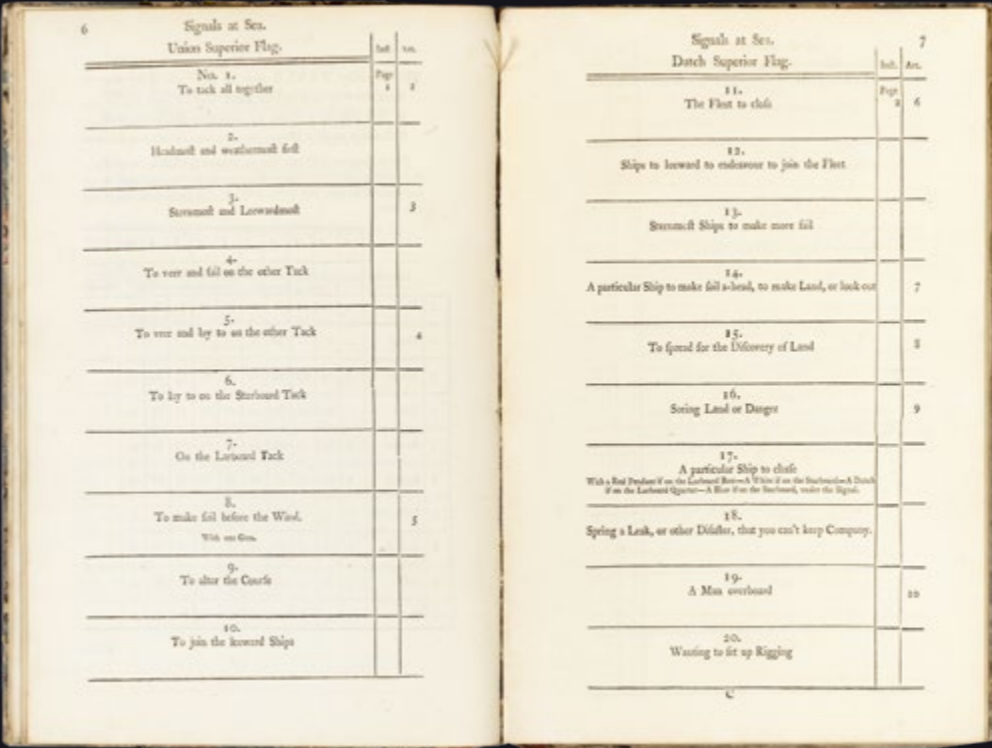 6
Signals at Sea.
Union Superior Flag.
Inst
Art.
No. 1.
To tack all together
Page
1
2
2.
Headmoſt and weathermoſt firſt
3.
Sternmoſt and Leewardmoſt
3
4.
To veer and ſail on the other Tack
5.
To veer and lay to on the other Tack
4
6.
To lay to on the Starboard Tack
7.
On the Larboard Tack
8.
To make ſail before the Wind.
5
With one Gun.
9.
To alter the Courſe
10.
To join the leeward Ships
Signals at Sea.
7
Dutch Superior Flag.
Inst.
Art.
11.
The Fleet to cloſe
Page
6
12.
Ships to leeward to endeavour to join the Fleet
13.
Sternmoſt Ships to make more ſail
14.
A particular Ship to make ſail a-head, to make Land, or look out
7
15.
To ſpread for the Diſcovery of Land
8
16.
Seeing Land or Danger
9
17.
A particular Ship to cloſe
With a Red Pendant if on the Larboard Bow—A White if on the Starboard—A Dutch
if on the Larboard Quarter—A Blue if on the Starboard, under the Signal.
18.
Spring a Leak, or other Diſaſter, that you can't keep Company.
19.
A Man overboard
10
20.
Wanting to ſet up Rigging
C